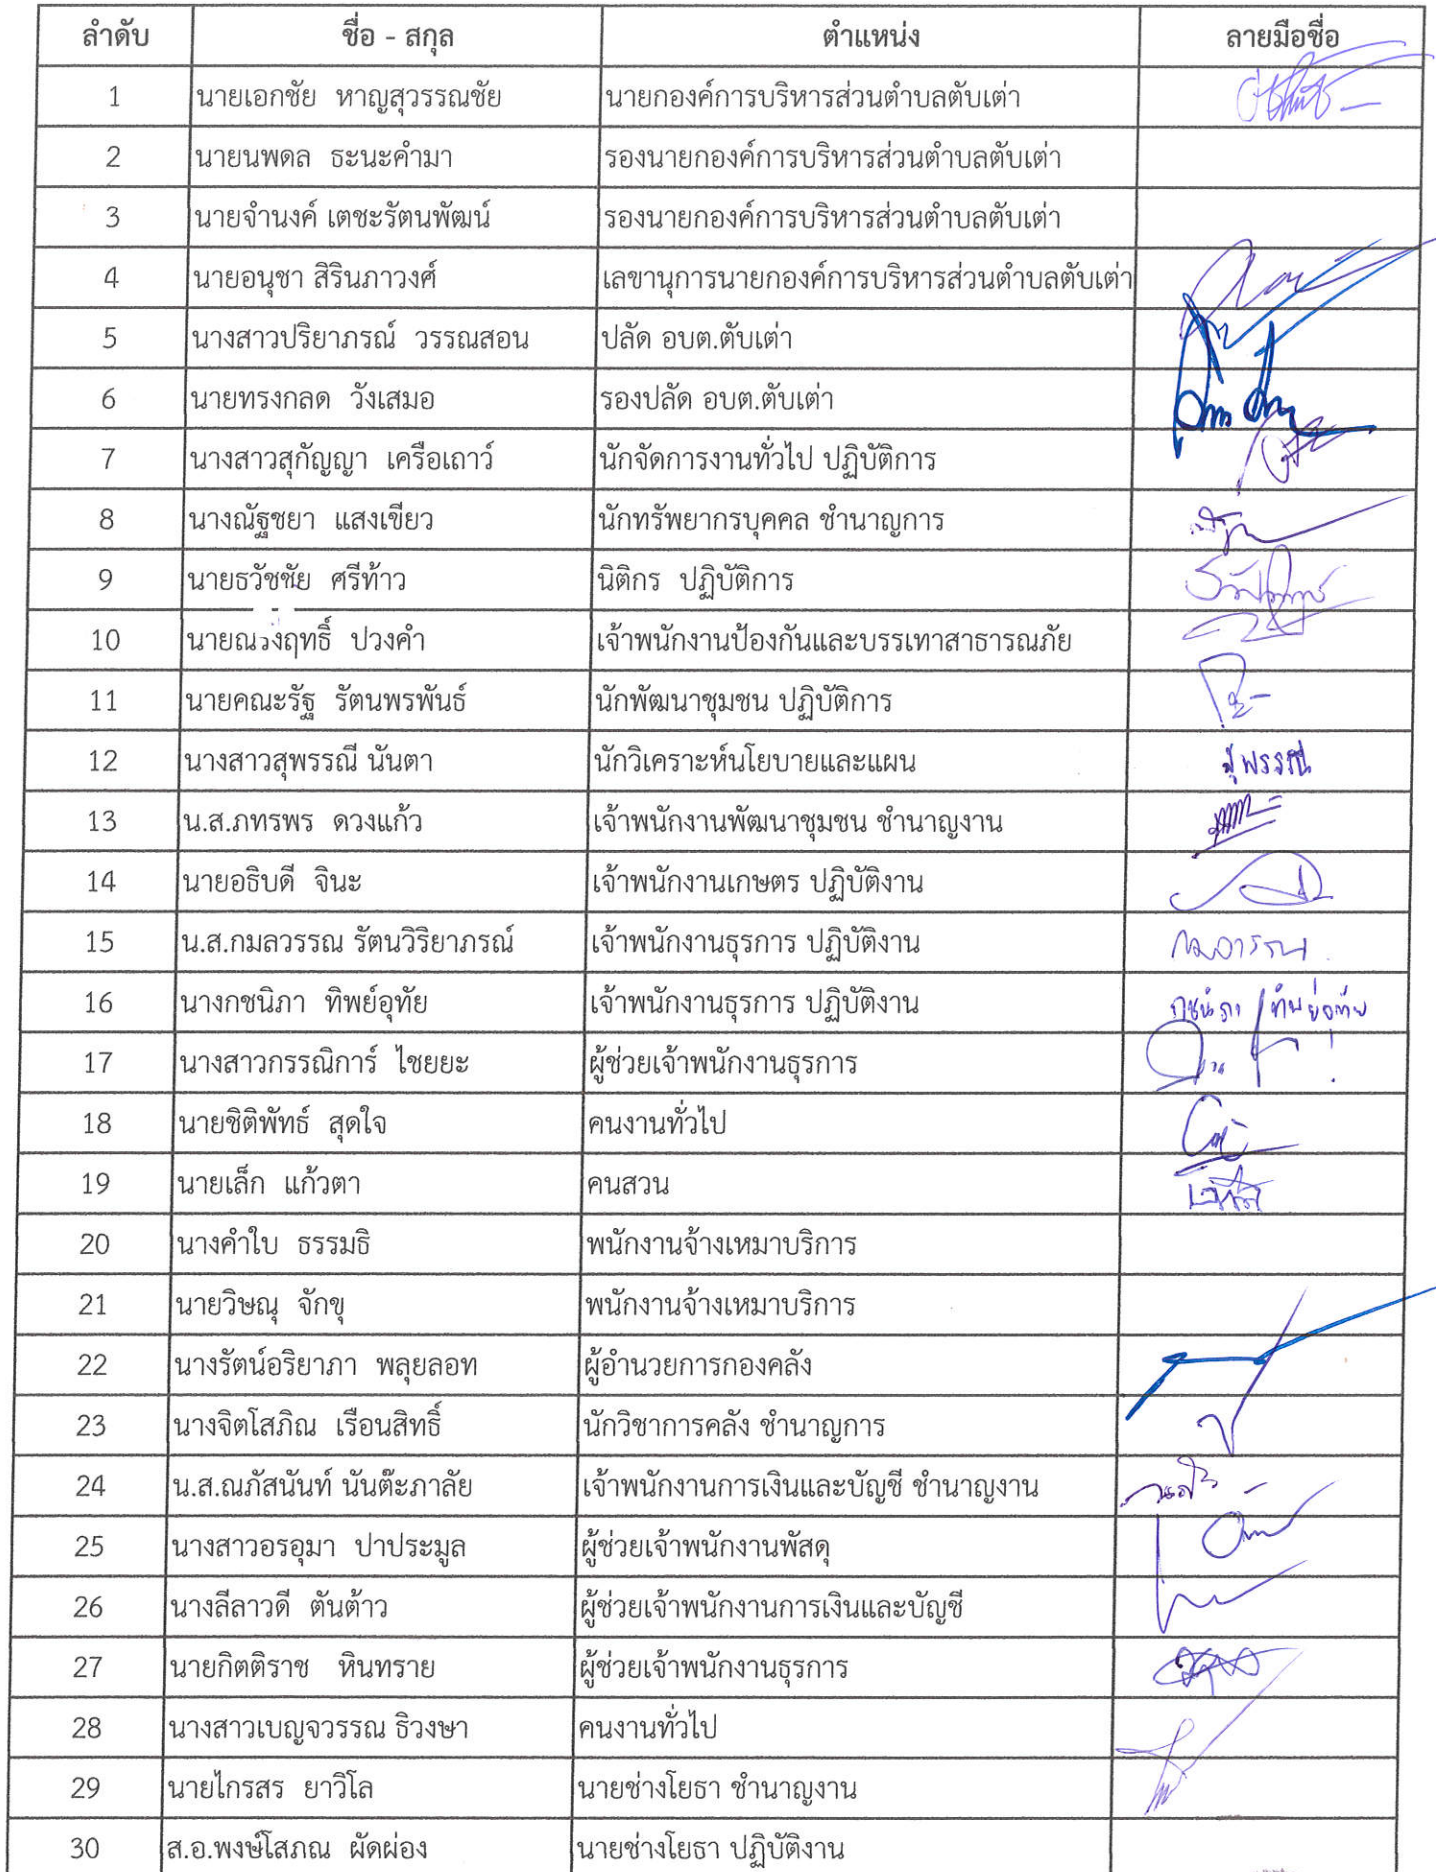 ลำดับ ชื่อ - สกุล ตำแหน่ง ลายมือชื่อ
1 นายเอกชัย หาญสุวรรณชัย นายกองค์การบริหารส่วนตำบลตับเต่า
2 นายนพดล ธะนะคำมา รองนายกองค์การบริหารส่วนตำบลตับเต่า
3 นายจำนงค์ เตชะรัตนพัฒน์ รองนายกองค์การบริหารส่วนตำบลตับเต่า
4 นายอนุชา สิรินภาวงศ์ เลขานุการนายกองค์การบริหารส่วนตำบลตับเต่า
5 นางสาวปริยาภรณ์ วรรณสอน ปลัด อบต.ตับเต่า
6 นายทรงกลด วังเสมอ รองปลัด อบต.ตับเต่า
7 นางสาวสุกัญญา เครือเถาว์ นักจัดการงานทั่วไป ปฏิบัติการ
8 นางณัฐชยา แสงเขียว นักทรัพยากรบุคคล ชำนาญการ
9 นายธวัชชัย ศรีท้าว นิติกร ปฏิบัติการ
10 นายณรงฤทธิ์ ปวงคำ เจ้าพนักงานป้องกันและบรรเทาสาธารณภัย
11 นายคณะรัฐ รัตนพรพันธ์ นักพัฒนาชุมชน ปฏิบัติการ
12 นางสาวสุพรรณี นันตา นักวิเคราะห์นโยบายและแผน สุพรรณี
13 น.ส.ภทรพร ดวงแก้ว เจ้าพนักงานพัฒนาชุมชน ชำนาญงาน
14 นายอธิบดี จินะ เจ้าพนักงานเกษตร ปฏิบัติงาน
15 น.ส.กมลวรรณ รัตนวิริยาภรณ์ เจ้าพนักงานธุรการ ปฏิบัติงาน กมลวรรณ
16 นางกชนิภา ทิพย์อุทัย เจ้าพนักงานธุรการ ปฏิบัติงาน กชนิภา ทิพย์อุทัย
17 นางสาวกรรณิการ์ ไชยยะ ผู้ช่วยเจ้าพนักงานธุรการ
18 นายชิติพัทธ์ สุดใจ คนงานทั่วไป
19 นายเล็ก แก้วตา คนสวน
20 นางคำใบ ธรรมธิ พนักงานจ้างเหมาบริการ
21 นายวิษณุ จักขุ พนักงานจ้างเหมาบริการ
22 นางรัตน์อริยาภา พลุยลอท ผู้อำนวยการกองคลัง
23 นางจิตโสภิณ เรือนสิทธิ์ นักวิชาการคลัง ชำนาญการ
24 น.ส.ณภัสนันท์ นันต๊ะภาลัย เจ้าพนักงานการเงินและบัญชี ชำนาญงาน
25 นางสาวอรอุมา ปาประมูล ผู้ช่วยเจ้าพนักงานพัสดุ
26 นางลีลาวดี ตันต้าว ผู้ช่วยเจ้าพนักงานการเงินและบัญชี
27 นายกิตติราช หินทราย ผู้ช่วยเจ้าพนักงานธุรการ
28 นางสาวเบญจวรรณ ธิวงษา คนงานทั่วไป
29 นายไกรสร ยาวิโล นายช่างโยธา ชำนาญงาน
30 ส.อ.พงษ์โสภณ ผัดผ่อง นายช่างโยธา ปฏิบัติงาน